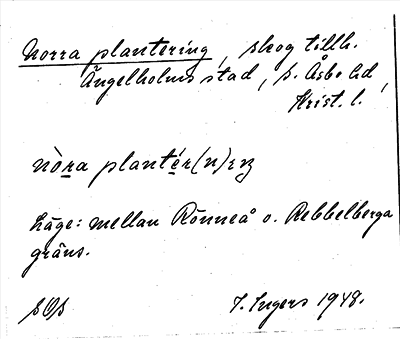 Norra plantering, skog tillh.
Ängelholms stad, S. Åsbo hd,
Krist. l.
nòra planté̱r(n)ɪŋ
Läge: mellan Rönneå o. Rebbelberga
gräns.
SOS
I. Ingers 1948.